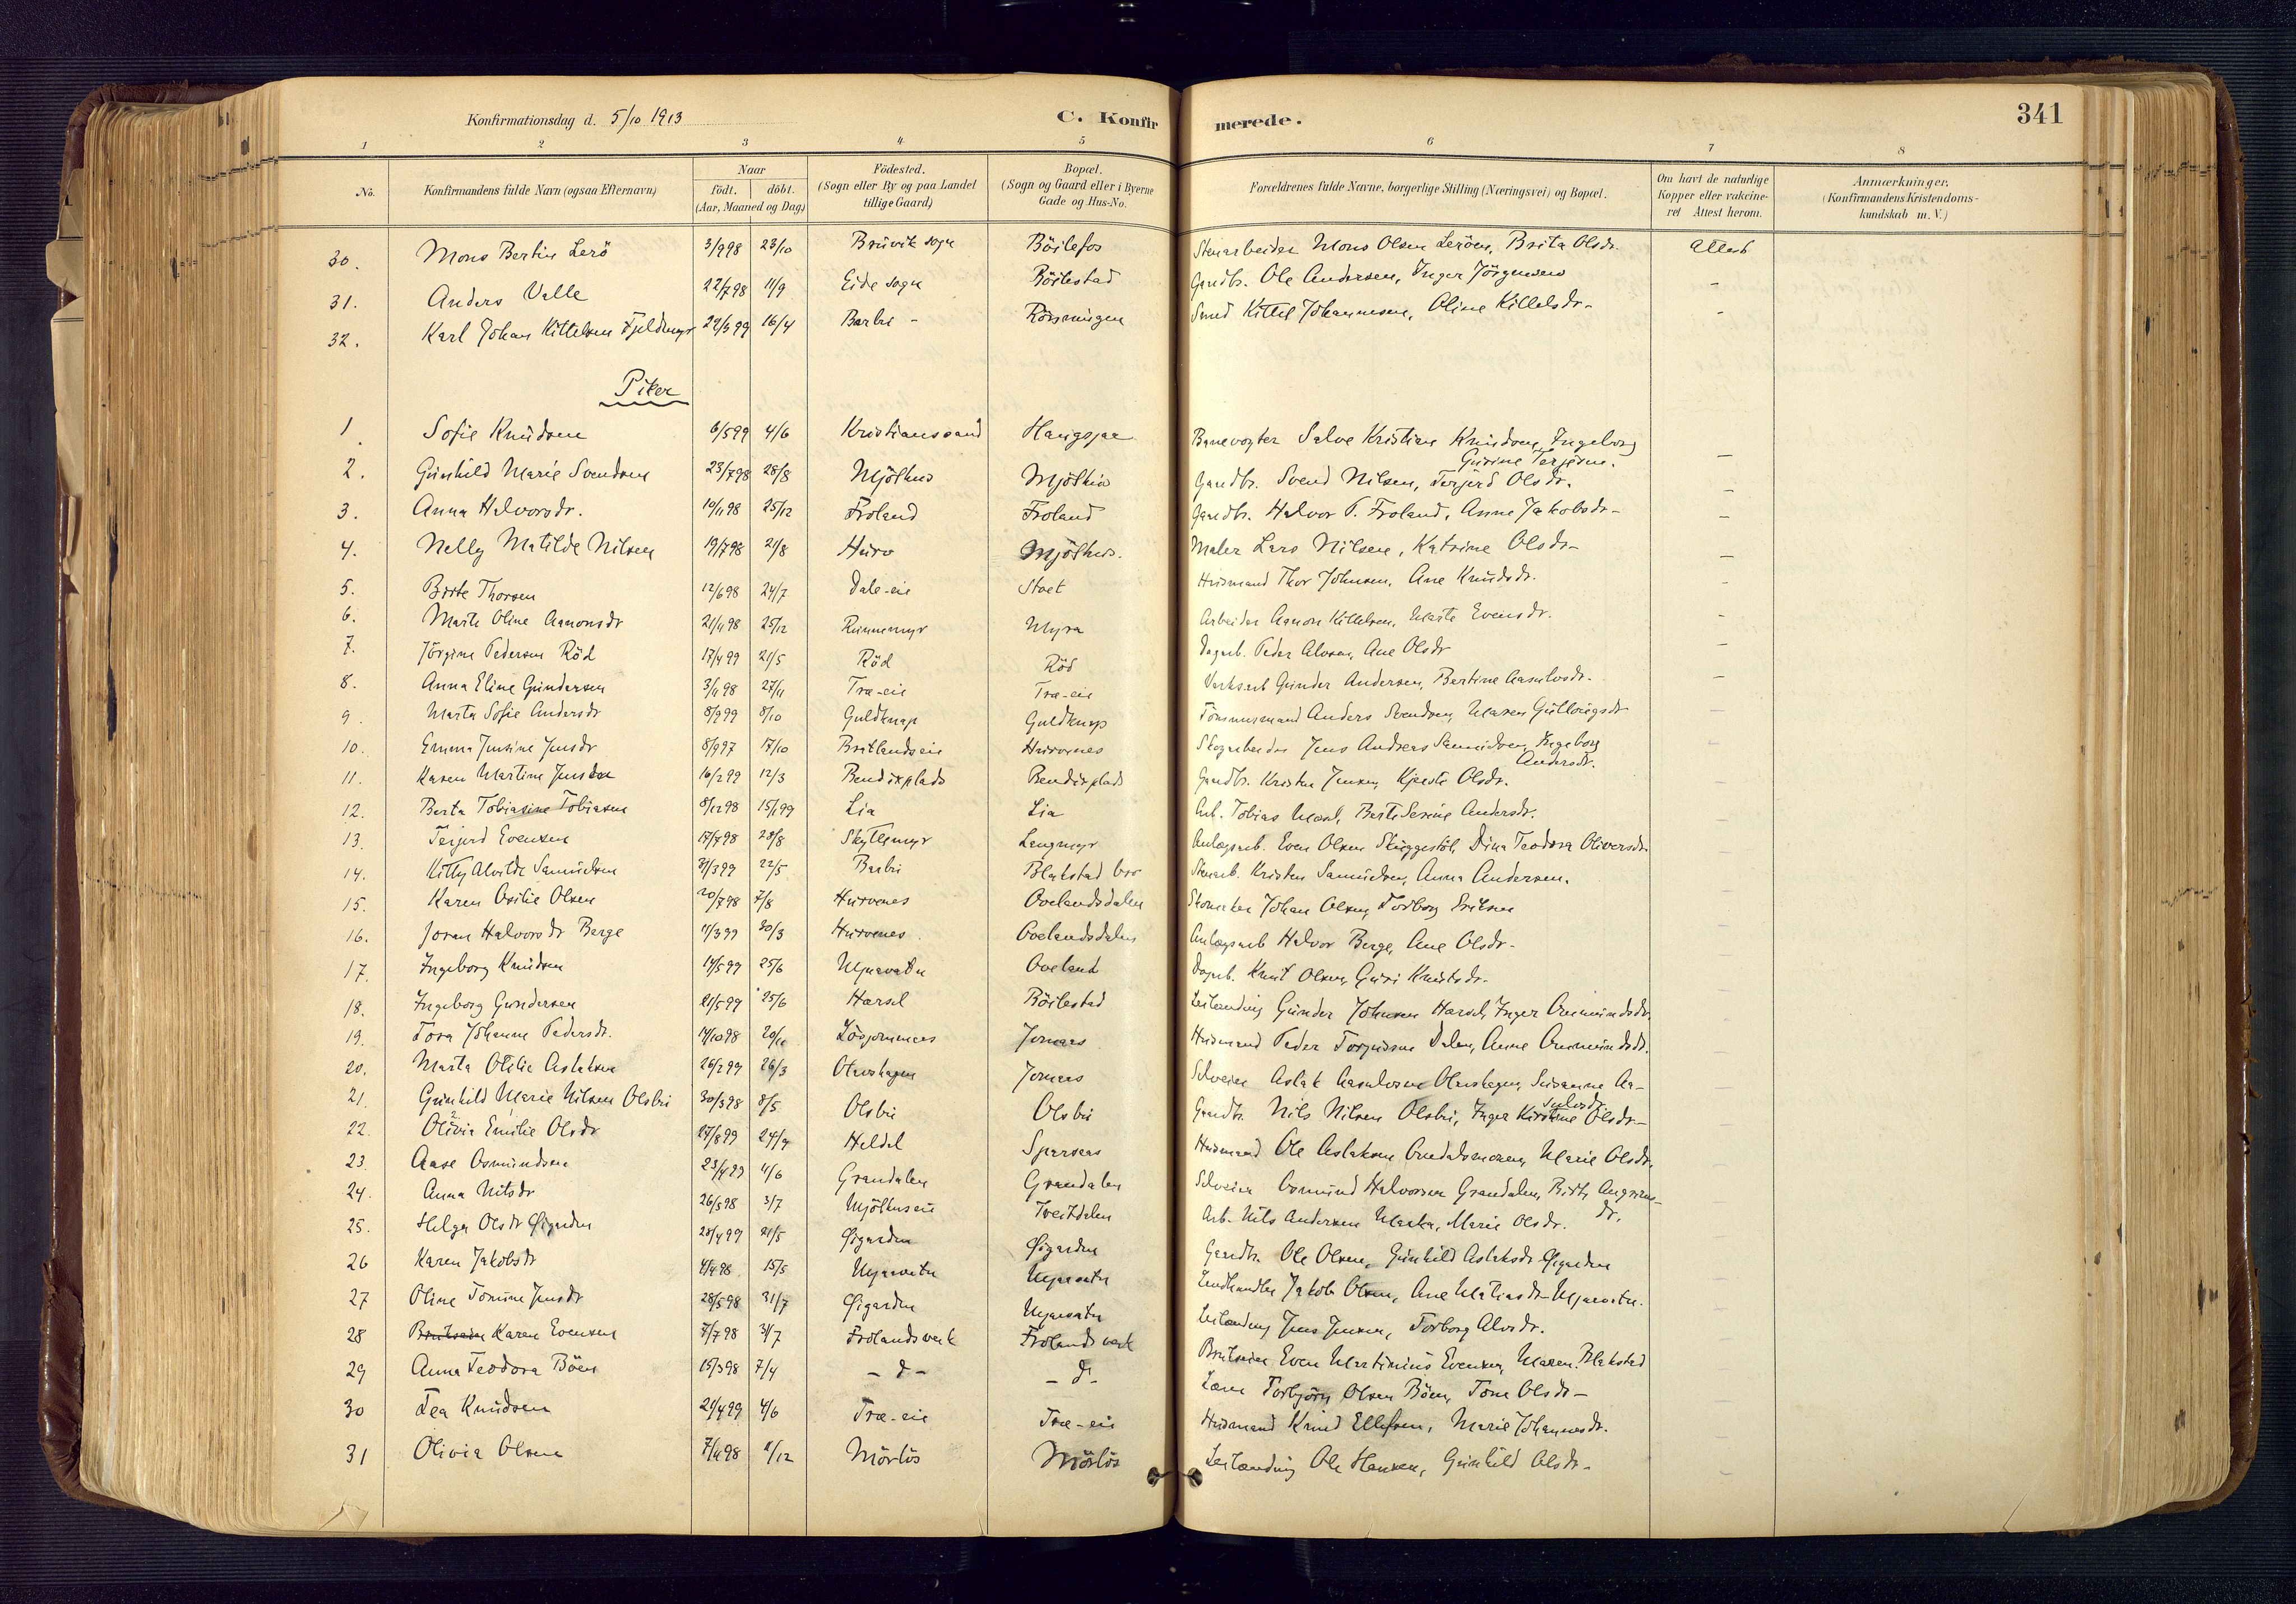 Konfirmationsdag d. 5/10 1913 C. Konfirmerede. 341
1 2 3 4 5 6 7 8
No. Konfirmandens fulde Navn (ogsaa Efternavn) Naar födt. döbt. (Aar, Maaned og Dag) Födested. (Sogn eller By og paa Landet tillige Gaard) Bopæl. (Sogn og Gaard eller i Byerne Gade og Hus-No. Forældrenes fulde Navne, borgerlige Stilling (Næringsvei) og Bopæl. Om havt de naturlige Kopper eller vakcineret Attest herom. Anmærkninger. (Konfirmandens Kristendomskundskab m. V.)
30. Mons Bertin Lerö 3/9 98 23/10 Bruvik sogn Böilefos Stenarbeider Mons Olsen Leröen, Brita Olsdr. Attest
31. Anders Valle 22/7 98 11/9 Eide sogn Böilestad Gaardbr. Ole Andersen, Inger Jörgensen -
32. Karl Johan Kittelsen Fjeldmyr 22/3 99 16/4 Barbu - Smed Kittel Johannesen, Oline Kittelsdr- -
Piker
1. Sofie Knudsen 6/5 99 4/6 Kristianssand Banevogter Salve Kristian Knudsen, Ingeborg
Gurine Terjesen. -
2. Gunhild Marie Svendsen 23/7 98 28/8 Mjölhus Mjölhus Gaardbr. Svend Nilsen, Terjerd Olsdr. -
3. Anna Halvorsdr. 10/11 98 25/12 Froland Froland Gaardbr. Halvor P. Froland, Anne Jakobsdr- -
4. Nelly Matilde Nilsen 19/7 98 21/8 Hurv Mjölhus. Maler Lars Nilsen, Katrine Olsdr- -
5. Birte Thorsen 12/6 98 24/7 Dale-eie Stoet Husmand Thor Johnsen, Ane Knudsdr. -
6. Marte Oline Aanonsdr 21/11 98 25/12 Runnemyr Myra Arbeider Aanon Kittelsen, Marte Evensdr. -
7. Jörgine Pedersen Röd 17/4 99 21/5 Röd Röd Dagarb. Peder Alvsen, Ane Olsdr -
8. Anna Eline Gundersen 3/11 98 27/11 Træ-eie Træ-eie Verksarb Gunder Andersen, Bertine Aasulvsdr. -
9. Marta Sofie Andersdr 8/9 99 8/10 Guldknap Guldknap Tömmermand Anders Svendsen, Maren Gullaugsdr -
10. Emma Jensine Jensdr 8/9 97 17/10 Bratlandseie Hurvenes Skogarbeider Jens Andreas Samuelsen, Ingeborg
Andersdr. -
11. Karen Martine Jensdr 16/2 99 12/3 Bendixplads Bendixplads Gaardbr. Kristen Jensen, Kjerste Olsdr. -
12. Berta Tobiasine Tobiasen 8/12 98 15/1 99 Lia Lia Arb. Tobias Mosel, Berte Serine Andersdr. -
13. Terjerd Evensen 17/7 98 28/8 Skytlemyr Langmyr Anlægsarb. Even Olsen Skuggestöl, Dina Teodora Oliversdr. -
14. Kitty Alvilde Samuelsen 31/3 99 22/5 Barbu Blakstad bro Stenarb. Kristen Samuelsen, Anna Andersen. -
15. Karen Osilie Olsen 20/7 98 7/8 Hurvenes Ovelandsdalen Skomaker Johan Olsen, Torborg Eriksen -
16. Joran Halvorsdr Berge 11/3 99 30/3 Hurvenes Ovelandsdalen Anlægsarb Halvor Berge, Ane Olsdr- -
17. Ingeborg Knudsen 14/5 99 25/6 Mjaavatn Oveland Dagarb. Knut Olsen, Guri Knutsdr. -
18. Ingeborg Gundersen 21/5 99 25/6 Harsel Böilestad Leilænding Gunder Johnsen Harsel, Inger Aanundsdr. -
19. Tora Johanne Pedersdr. 14/10 98 20/11 Jomaas Husmand Peder Torjussen Dalen, Anne Aanundsdt. -
20. Marta Otilie Aslaksen 26/2 99 26/3 Olavshagen Jomaas Selveier Aslak Aasulvsen Olavshagen, Susanne Aa-
sulvsdr. -
21. Gunhild Marie Nilsen Olsbu 30/3 98 8/5 Olsbu Olsbu Gaardbr. Nils Nilsen Olsbu, Inger Kirstine Olsdr- -
22. Olivia Emilie Olsdr 27/8 99 24/9 Heldal Sparsaas Husmand Ole Aslaksen, Marie Olsdr. -
23. Aase Osmundsen 23/4 99 4/6 Grandalen Grandalen Selveier Osmund Halvorsen Grandalen, Birte Augrims-
dr. -
24. Anna Nilsdr 26/5 98 3/7 Mjölhuseie Tveitdalen Arb. Nils Andersen, Marie Olsdr. -
25. Helga Olsdr Øigarden 28/4 99 21/5 Øigarden Øigarden Gaardbr. Ole Olsen, Gunhild Aslaksdr Øigarden -
26 Karen Jakobsdr 4/4 98 15/5 Mjaavatn Mjaavatn Landhandler Jakob Olsen, Ane Matiasdr- Mjaavatn. -
27 Oline Tomine Jensdr 28/5 98 31/7 Øigarden Mjaavatn Leilænding Jens Jensen, Torborg Alvsdr. -
28 Karen Evensen 7/7 98 31/7 Frolandsverk Frolandsverk Brukseier Even Martinius Evensen, Maren Blakstad -
29 Anna Teodora Böen 15/3 98 7/4 - d - - d - Lærer Torbjörn Olsen Böen, Tone Olsdr- -
30 Tea Knudsen 21/4 99 4/6 Træ-eie Træ-eie Husmand Knud Ellefsen, Marie Johannesdr. -
31 Olivia Olsen 7/11 98 11/12 Mörlös Mörlös Leilænding Ole Hansen, Gunhild Olsdr- -